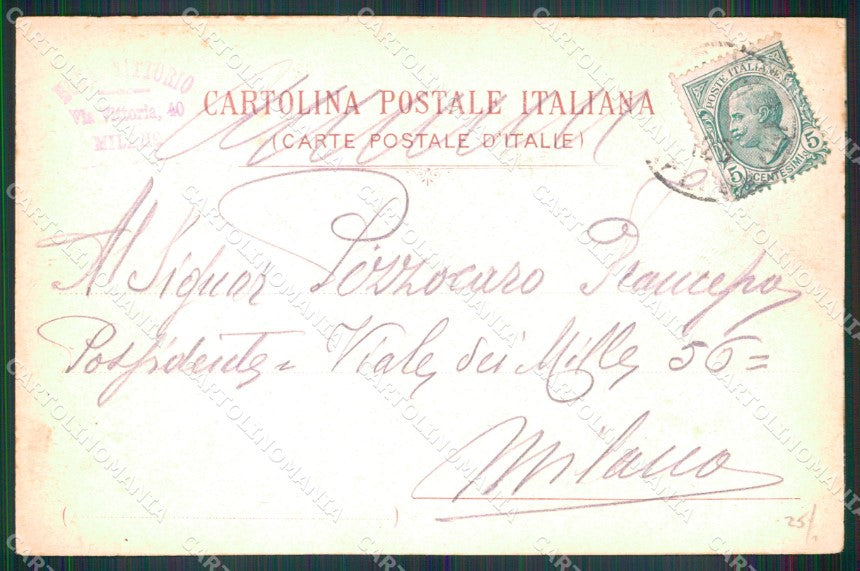 VITTORIO
Via Vittoria, 40
MILANO
CARTOLINA POSTALE ITALIANA
(CARTE POSTALE D'ITALIE)
POSTE ITALIANE
5 5
CENTESIMI
Al Signor Pizzocaro Francesco
Possidente = Viale dei Mille 56 =
Milano
25/.
CARTOLINOMANIA